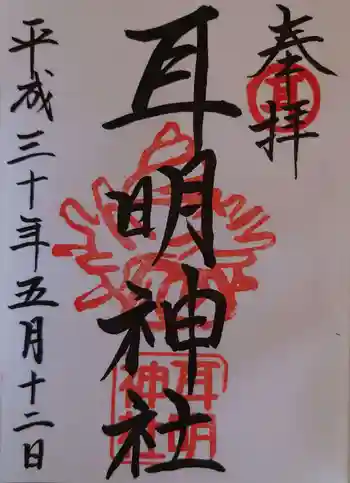 奉拝
耳明神社
平成三十年五月十二日
耳
耳明
神社